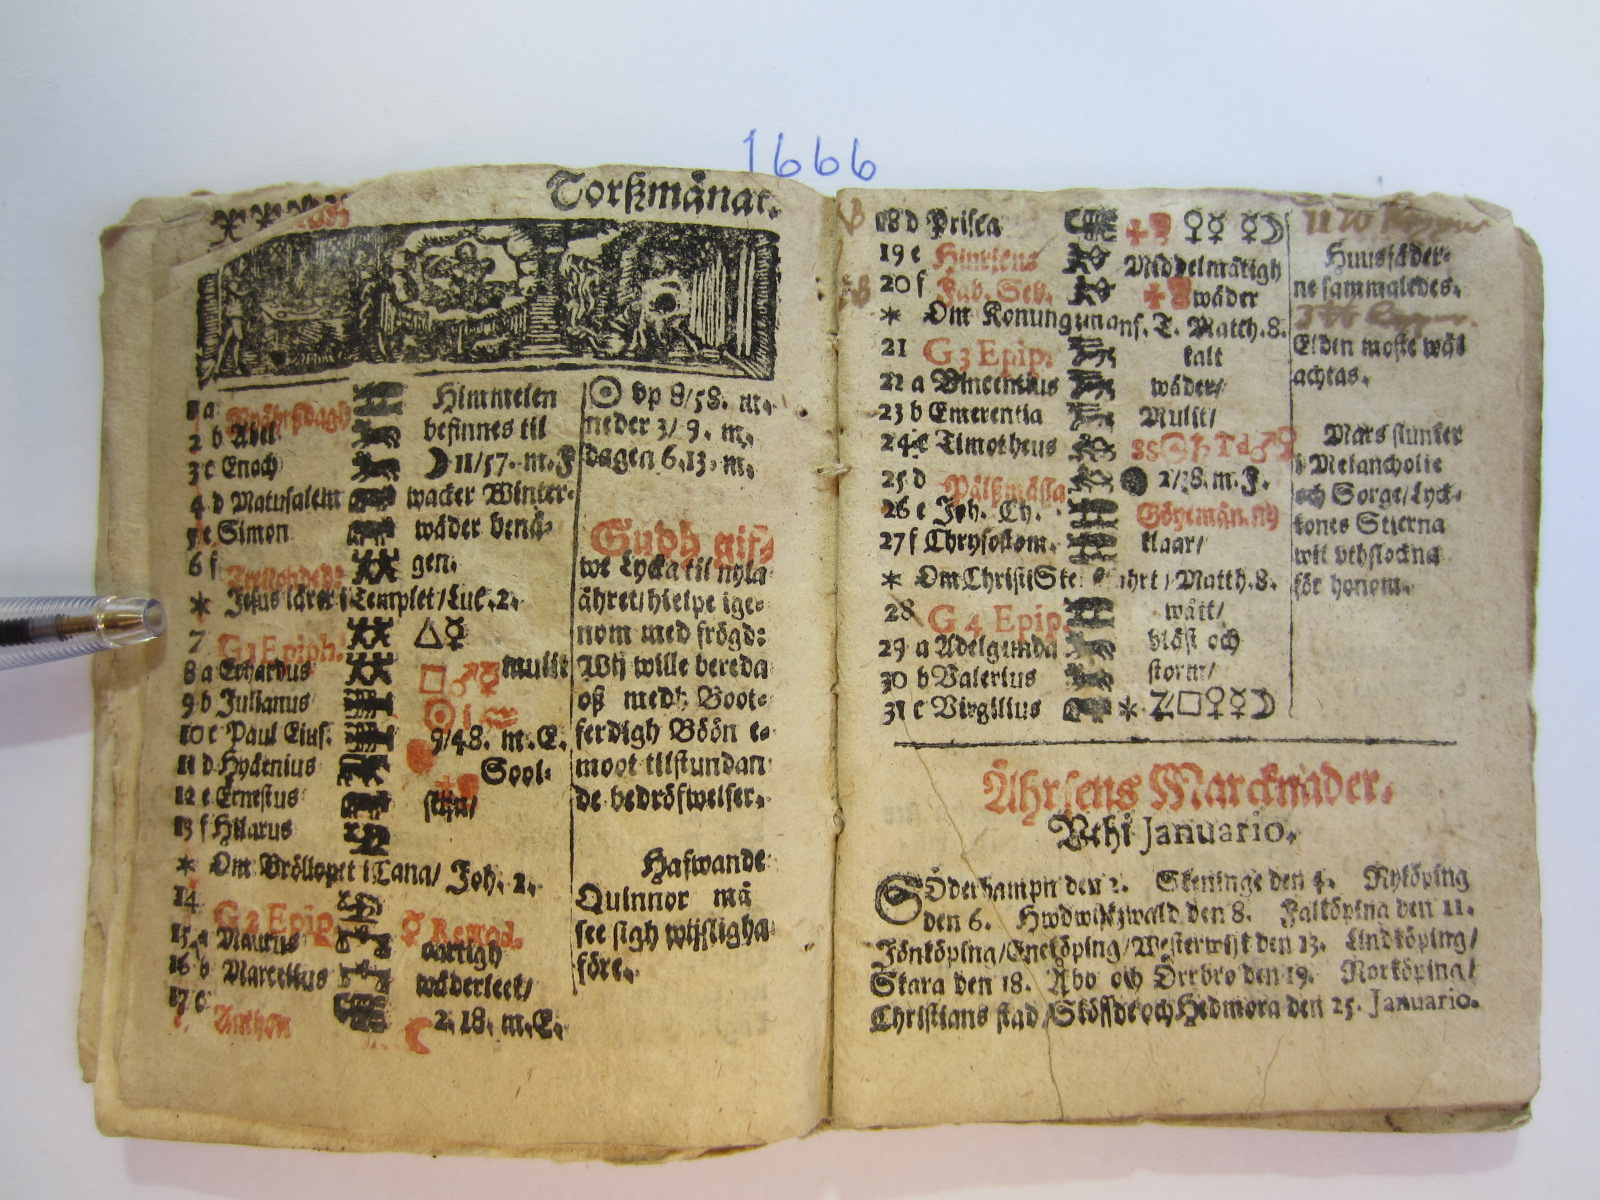 1666
Torßmånat.
1 a Nyåhrsdagh Himmelen
2 b Abel befinnes til
3 c Enoch ☽ 11/57. m. F
4 d Matusalem wacker Winter-
5 e Simon wåder benå-
6 f gen.
* Jesus lårer i Templet/Luc. 2.
7 G 1 Epiph. △☿
8 a Erhardus □♂☿ mulit
9 b Julianus ☉ i ♒
10 c Paul Eius. 9/48. m. E.
11 d Hyginius Sool-
12 e Ernestus skijn/
13 f Hilarus
* Om Bröllopet i Cana/ Joh. 2.
14 G 2 Epip. ☿ Retrod.
15 a Maurus oartigh
16 b Marcellus wåderleek/
17 c Anthon ☾ 2. 18. m. E.
☉ vp 8/58. m.
neder 3/ 9. m.
dagen 6. 13. m.
Gudh gif-
we Lycka til nyia
åhret/hielpe ige-
nom med frögd:
Wij wille bereda
oß medh Boot-
ferdigh Böön e-
moot tilstundan-
de bedröfwelser.
Hafwande
Quinnor må
see sigh wijsligha
före.
18 d Prisca ♀☿ ☿☽
19 e Hinricus Middelmåtigh
20 f Fab. Seb. wåder
* Om Konungmans. T. Matth. 8.
21 G 3 Epip. kalt
22 a Vincentius wåder/
23 b Emerentia Mulit/
24 c Timotheus
25 d Pålßmåssa ● 2/28. m. F.
26 e Joh. Ch. Göyemån. ny
27 f Chrysostom. klaar/
* Om Christi Ske fahrt / Matth. 8.
28 G 4 Epip. wått/
29 a Adelgunda blåst och
30 b Valerius storm/
31 c Virgilius * □♀☿☽
Huusfåder-
ne sammaledes.
Elden moste wål
achtas.
Mars stinker
i Melancholie
och Sorge/Lyck-
sones Stierna
wil vthslockna
för honom.
Åhrsens Marcknader.
Vthi Januario.
Söderhampn den 2. Skeninge den 4. Nyköping
den 6. Hwdwijkzwald den 8. Falköping den 11.
Jönköping/Eneköping/Westerwijk den 13. Lindköping/
Skara den 18. Åbo och Örebro den 19. Norköping/
Christians stad/Stöffde och Hedmora den 25. Januario.